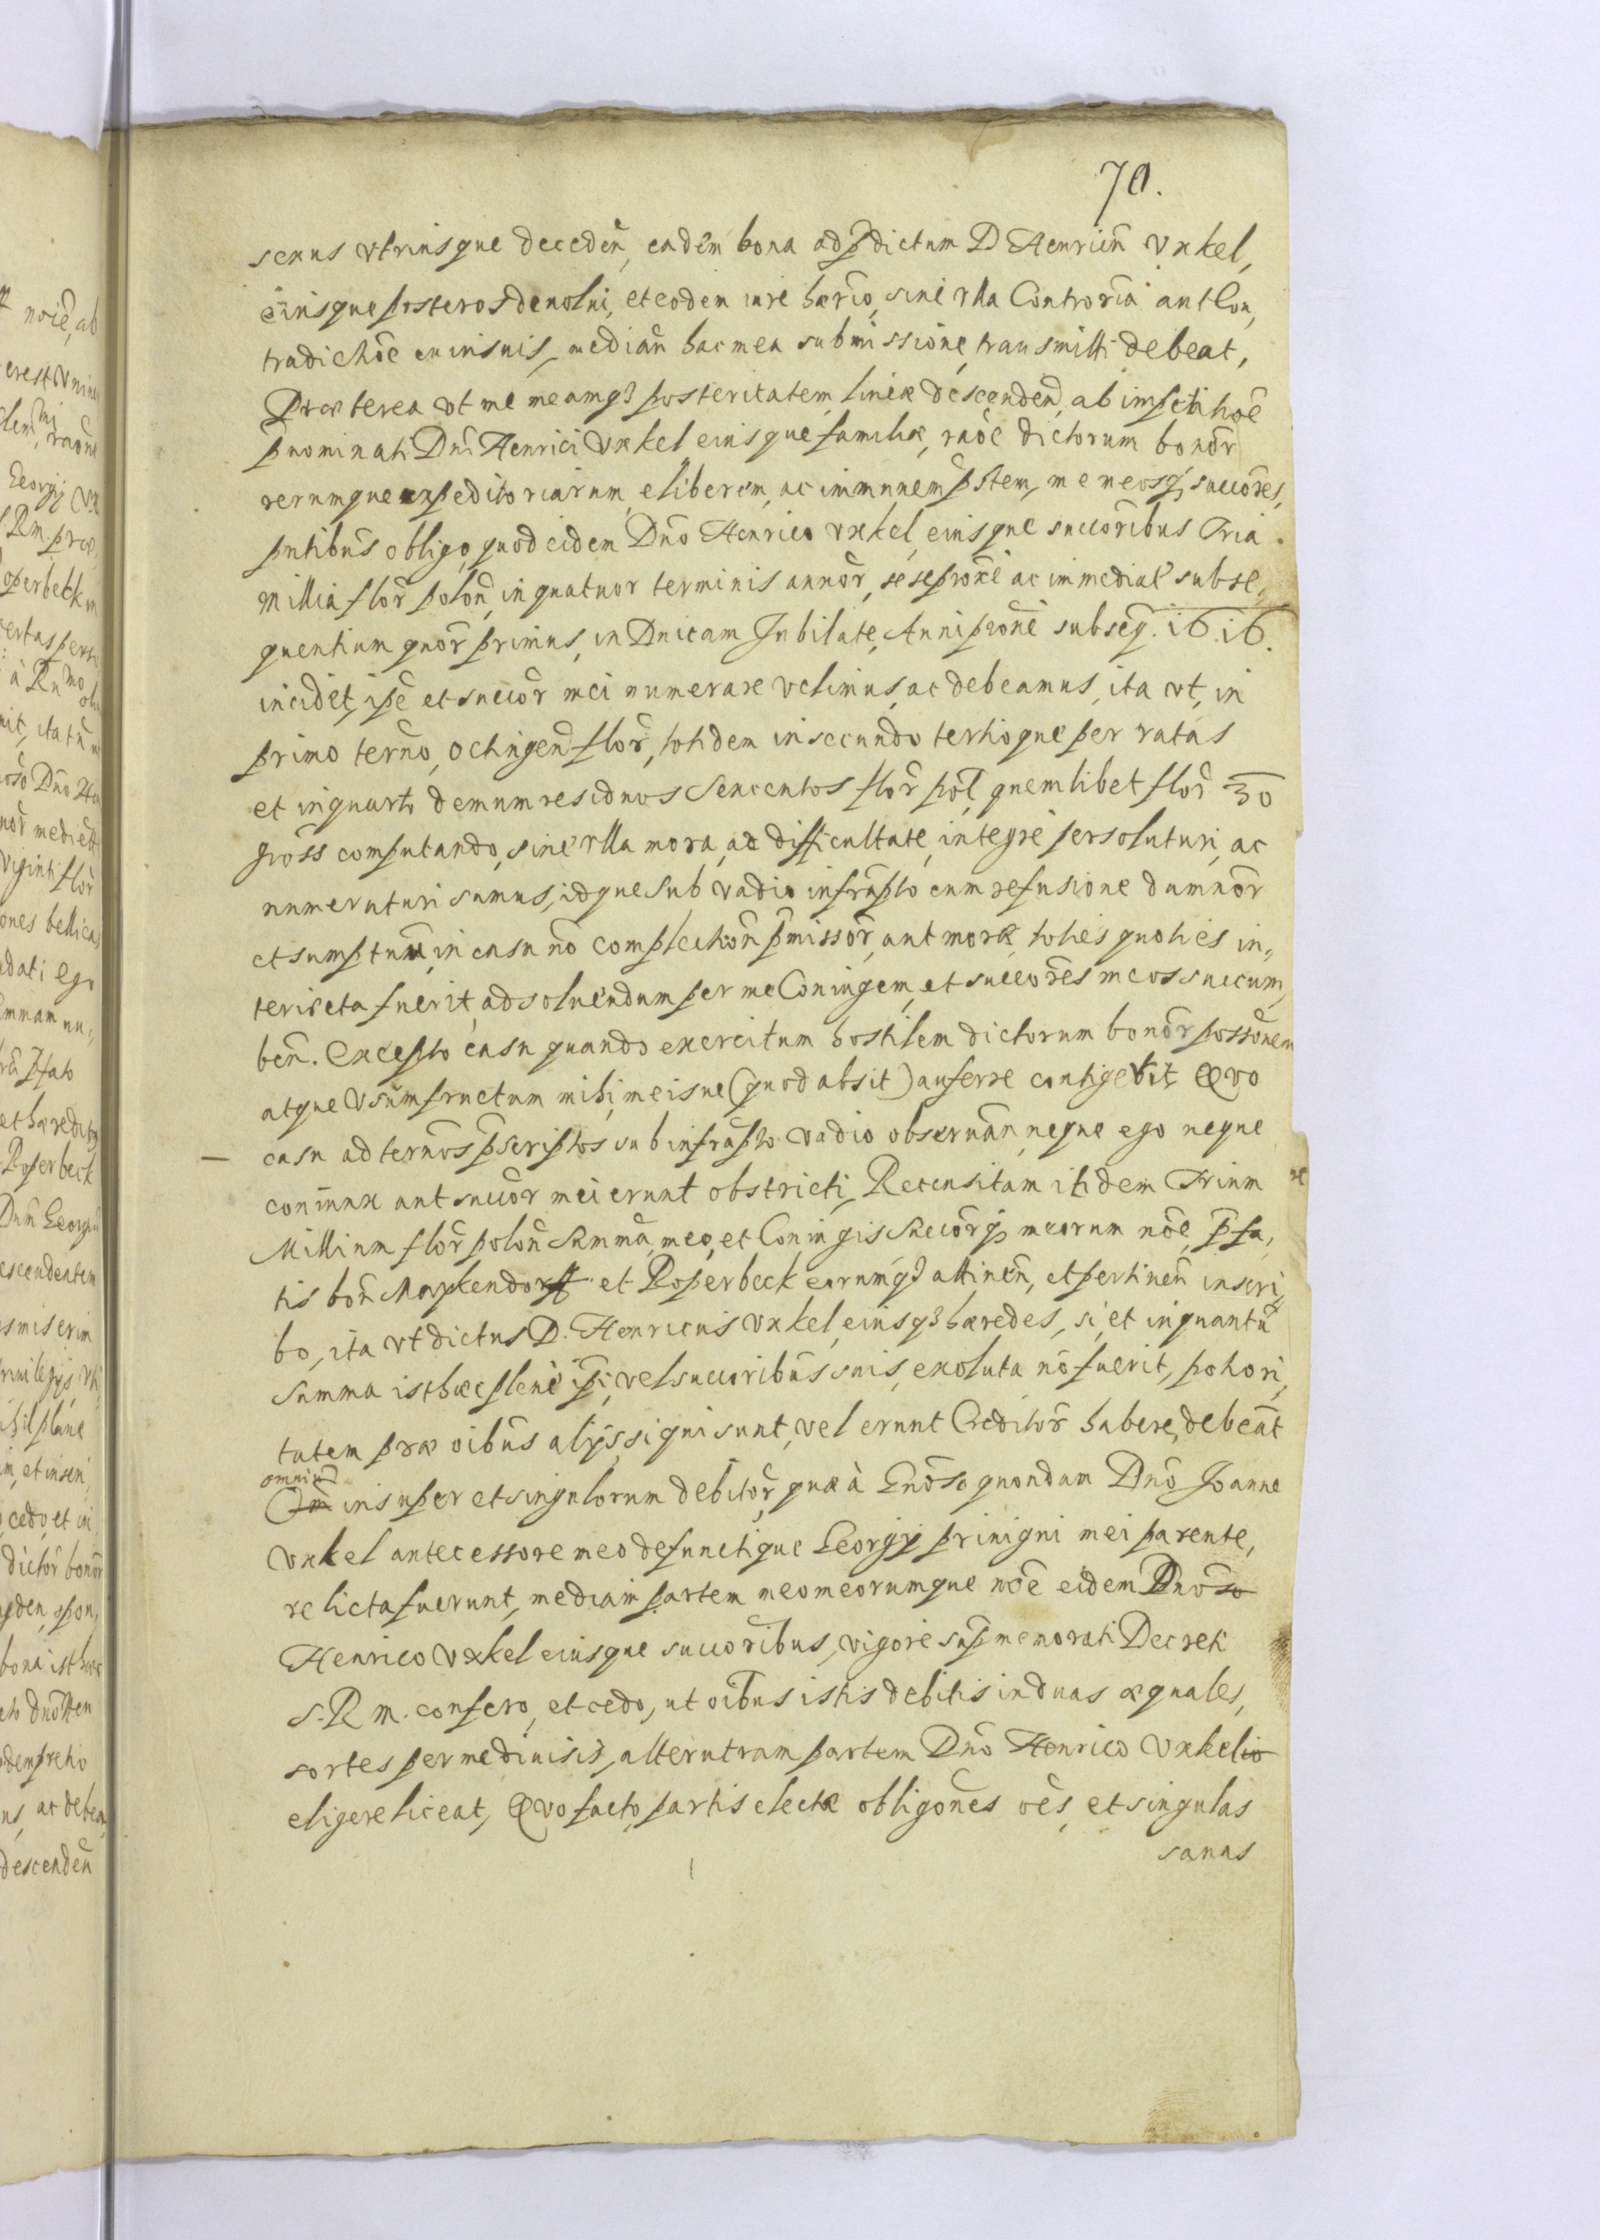 70.
sexus vtriusque decedeñ, eadem bona ad p̃dictum D Henricũ Vxkel,
eiusque posteros deuolui, et eodem iure hærio, sine vlla Controria aut Con,
tradictiõe cuiusuis, mediañ hac mea submissione, transmitti debeat,
Præterea vt me meamq3 posteritatem lineæ descendeñ, ab impetitiõe
p̃nominati Dñi Henrici Vxkel eiusque familiæ, raõe dictorum bonor̃
rerumque expeditoriarum, eliberem, ac immunem p̃stem, me meosq̃ succor̃es,
p̃ntibus obligo, quod eidem Dño Henrico Vxkel, eiusque succoribus Tria
Millia flor̃ poloñ, in quatuor terminis annor̃, sese proxe ac immediate subse,,
quentium quor̃ primus, in Dnicam Jubilate, Anni proxe subseq̃. 1616.
incidet, ipẽ et succor̃ mei numerare velimus, ac debeamus, ita vt, in
primo terño, octingeñ flor̃, totidem in secundo tertioque per ratas
et in quarto demum residuos Sexcentos flor̃ pol̃, quemlibet flor̃ 30
gross̃ computando, sine vlla mora, ac difficultate, integre persoluturi, ac
numeraturi sumus, idque sub vadio infrapto cum refusione damnor̃
et sumptuũ, in casu nõ completioñ p̃missor̃, aut moræ, toties quoties in,,
teriecta fuerit, ad soluendum per me Coniugem, et succores meos succum,
beñ. Excepto casu quando exercitum hostilem dictorum bonor̃ possõnem
atque Vsumfructum mihi, meisue (quod absit) auferre contigerit, Qvo
casu ad terños p̃scriptos sub infrapto vadio obseruañ, neque ego neque
coniunx aut succor̃ mei erunt obstricti, Recensitam itidem Trium
Millium flor̃ poloñ Summã, meo, et Coniugis Succorq̃ meorum nõe, p̃fa,
tis boñ Maxkendorff et Roperbeck earumq3 attineñ, et pertineñ inscri,
bo, ita vt dictus D. Henricus Vxkel, eiusq3 hæredes, si, et inquantũ
Summa isthæc plene ip̃i, vel succoribus suis, exoluta nõ fuerit, potiori,
tatem præ oibus alijs, si qui sunt, vel erunt Creditor̃ habere, debeãt
omniũ
insuper et singulorum debitor̃, quæ à Gnõso quondam Dño Joanne
Vxkel antecessore meo defunctique Georgij priuigni mei parente,
relicta fuerunt, mediam partem meo meorumque nõe eidem Dnõso
Henrico Vxkel eiusque succoribus, vigore sup̃memorati Decreti
S. R M. confero, et cedo, ut oibus istis debitis in duas æquales,
sortes per me diuisis, alterutram partem Dño Henrico Vxkelio
eligere liceat, Qvo facto, partis electæ obligões oẽs, et singulas
sanas